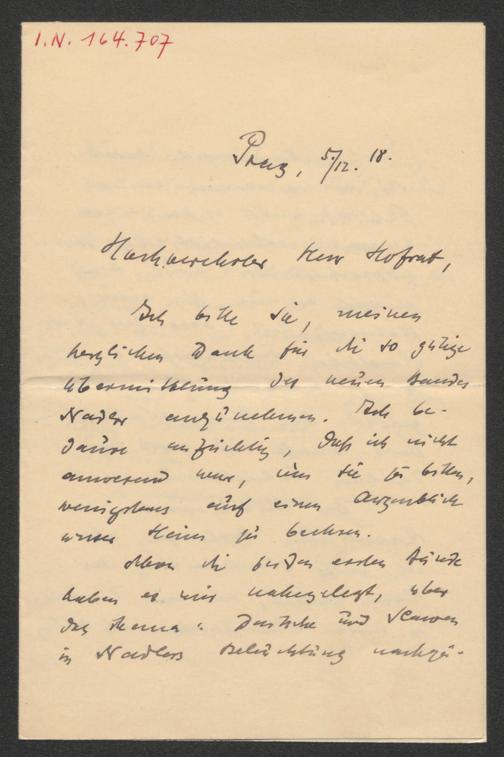 I.N. 164.707
Prag, 5/12. 18.
Hochverehrter Herr Hofrat,
Ich bitte Sie, meinen
herzlichen Dank für die so gütige
Übermittlung des neuen Bandes
Nadler anzunehmen. Ich be-
daure aufrichtig, daß ich nicht
anwesend war, um Sie zu bitten,
wenigstens auf einen Augenblick
unser Heim zu beehren.
Schon die beiden ersten Bände
haben es mir nahegelegt, über
das Thema: Deutsche und Slawen
in Nadlers Beleuchtung nachzu-